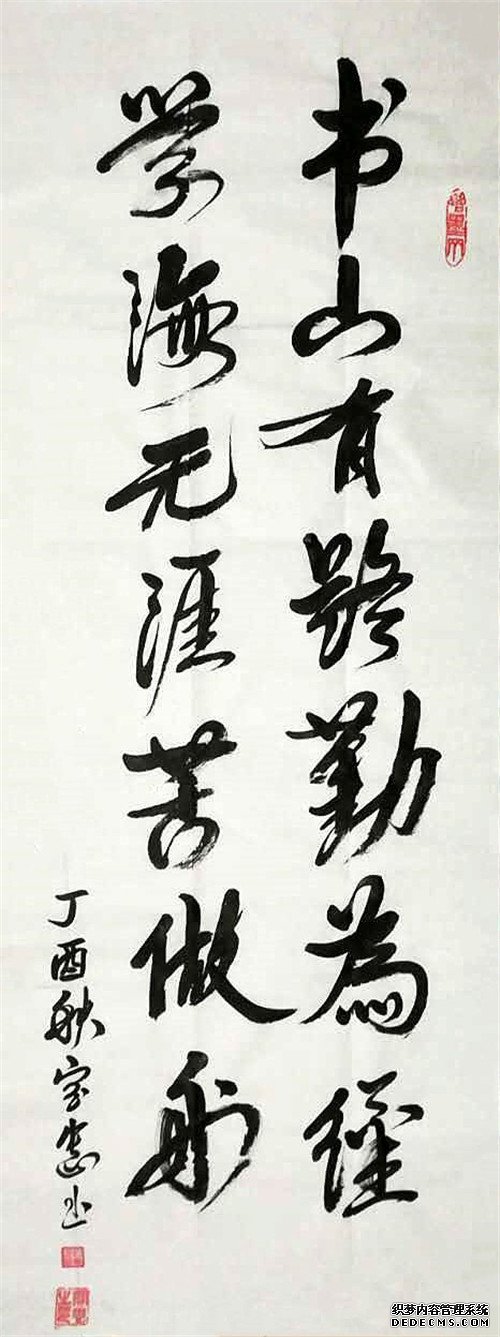 书山有路勤為經
学海无涯苦做舟
丁酉秋
织梦内容管理系统
DEDECMS.COM